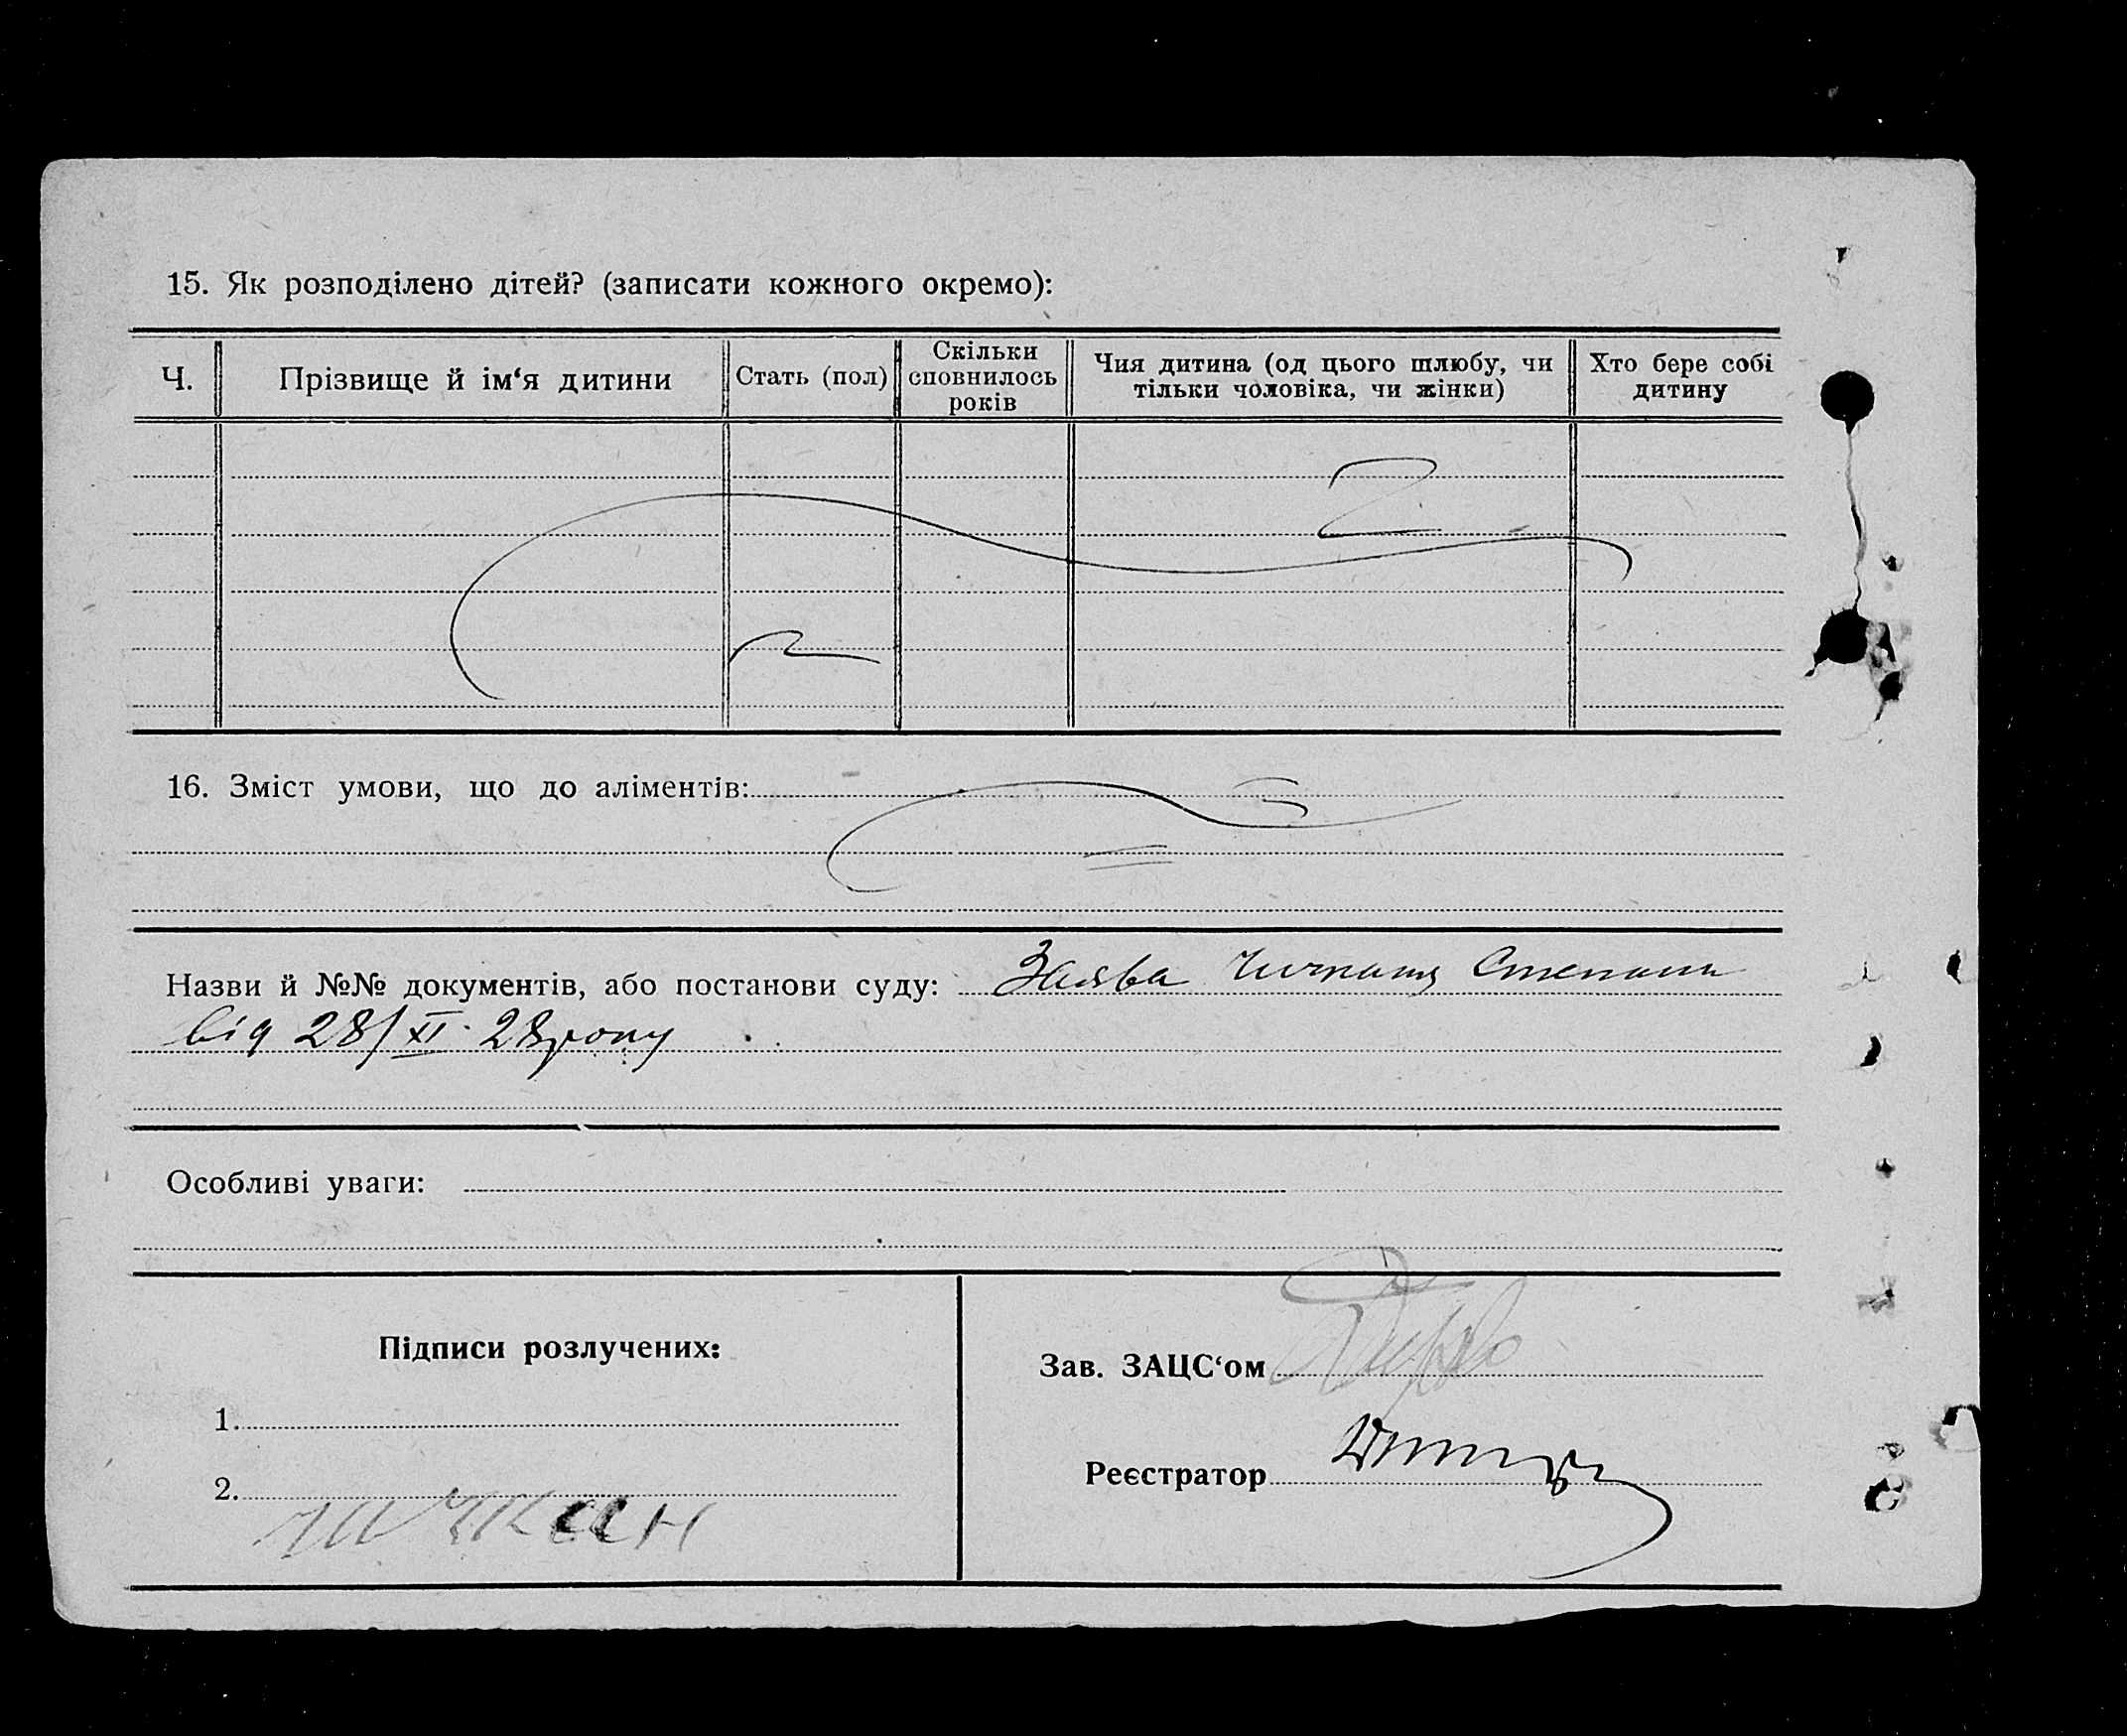 15. Як розподілено дітей? (записати кожного окремо):
Ч.
Прізвище й ім‘я дитини
Стать (пол)
Скільки
сповнилось
років
Чия дитина (од цього шлюбу, чи
тільки чоловіка, чи жінки)
Хто бере собі
дитину
16. Зміст умови, що до аліментів:
Назви й №№ документів, або постанови суду: Заява Чичкана Степана
від 28/XI 28 року
Особливі уваги:
Підписи розлучених:
1.
2.
Чичкан
Зав. ЗАЦС‘ом
Реєстратор